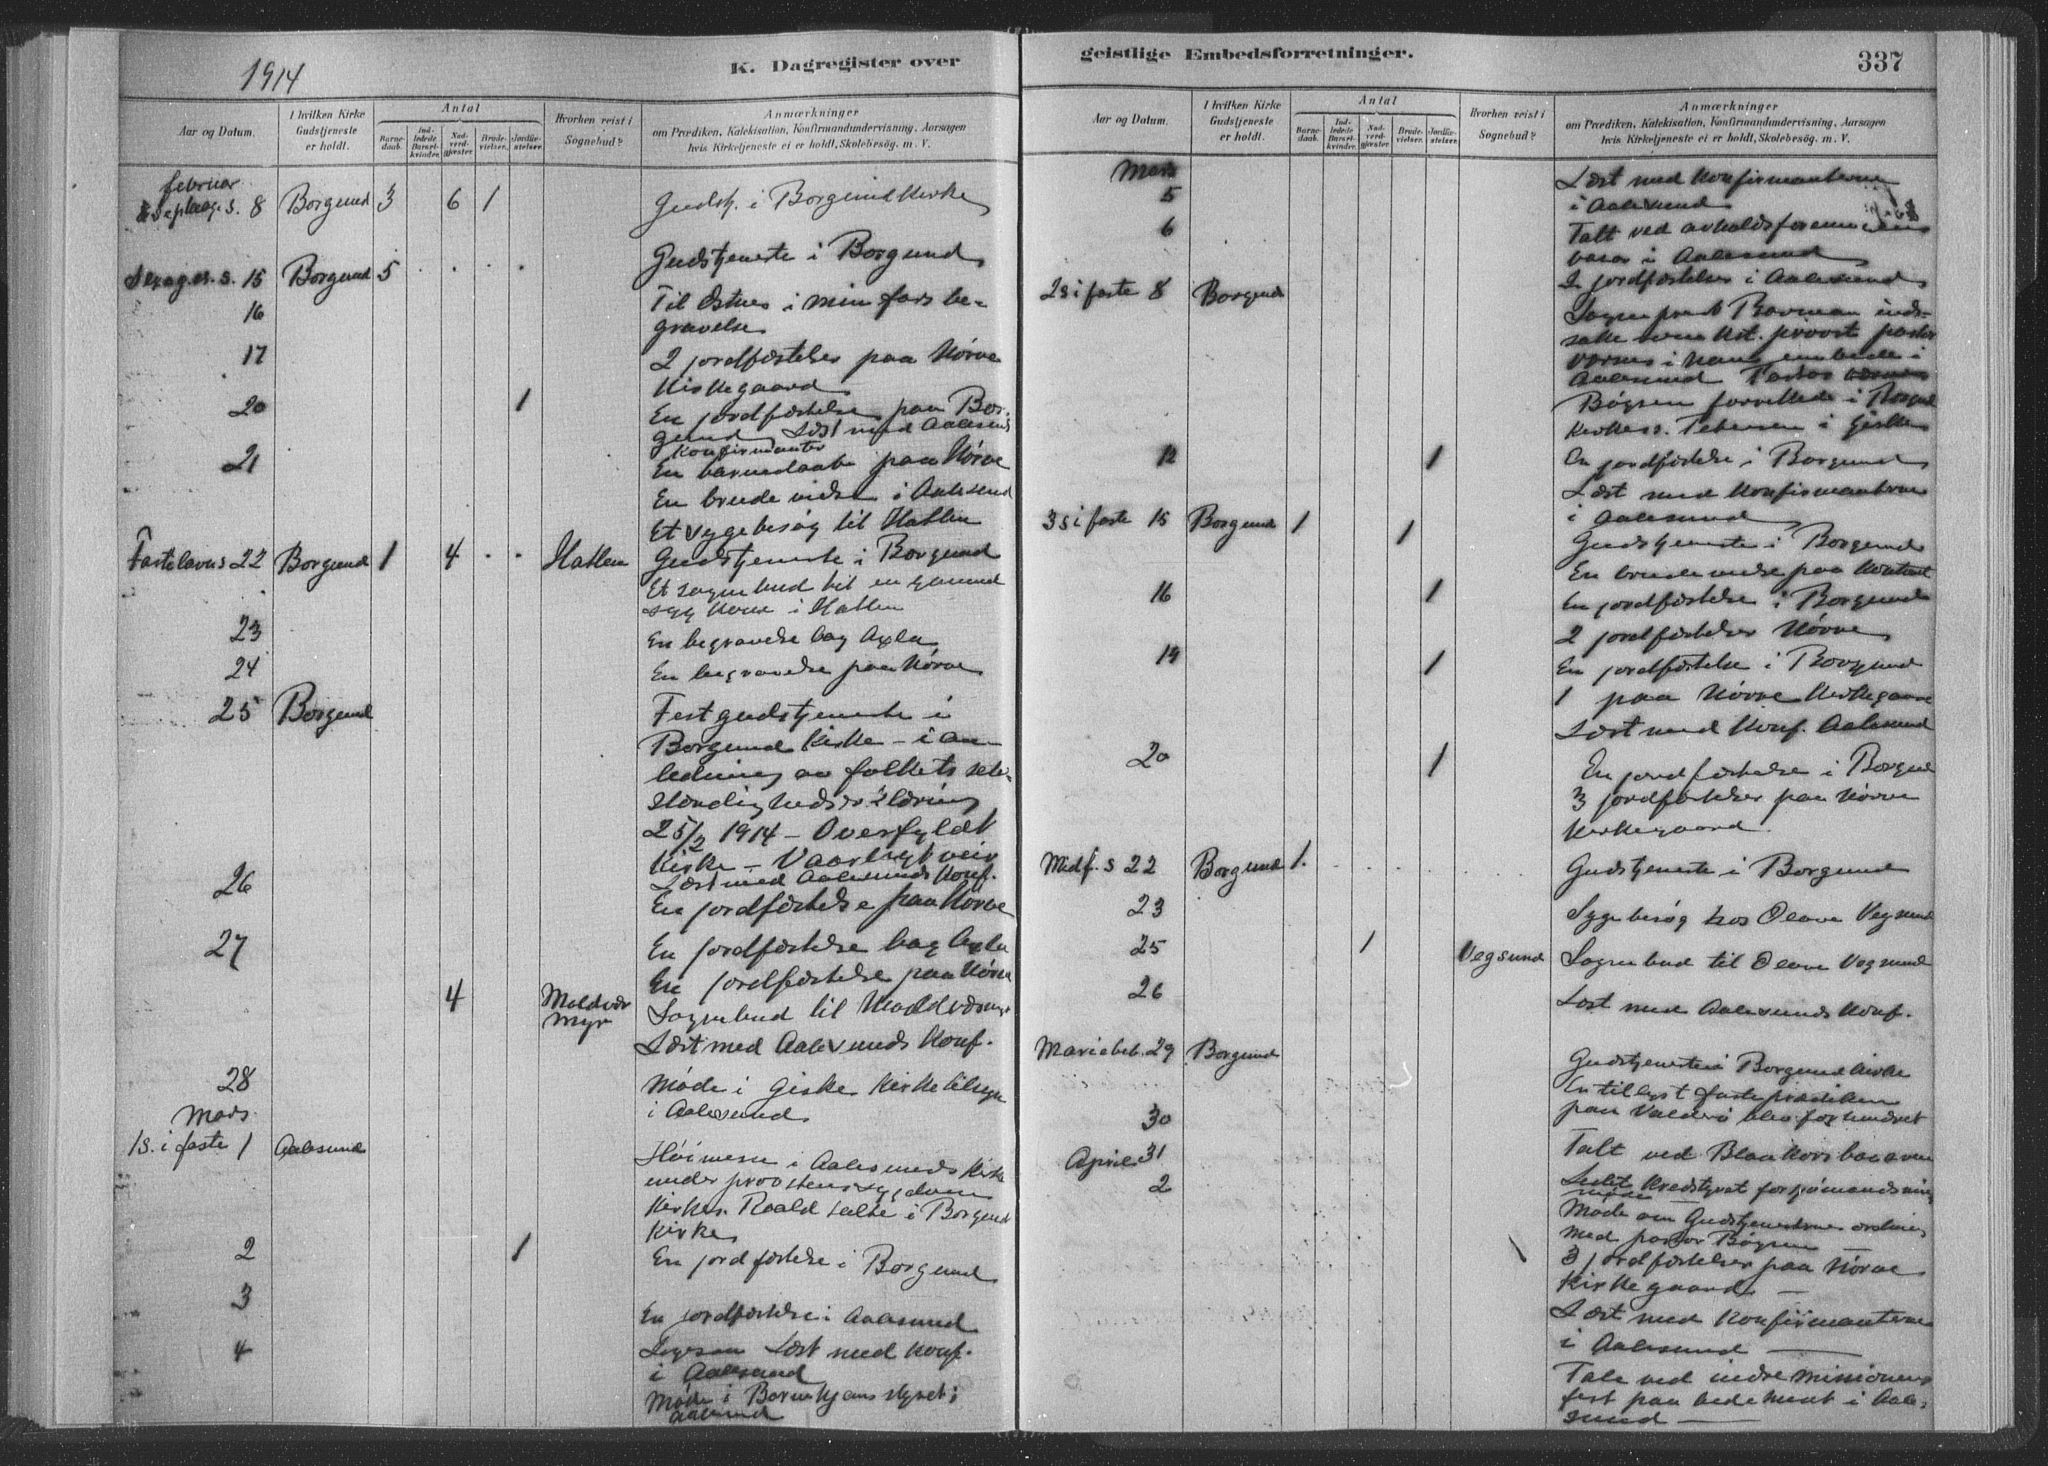 1914
K. Dagregister over
Aar og Datum.
I hvilken Kirke Gudstjeneste er holdt.
Antal
Barnedaab.
Indledede Barselkvinder.
Nadverdgjæster
Brudevielser.
Jordfæstelser.
Hvorhen reist i Sognebud?
Anmærkninger
om Prædiken, Katekisation, Konfirmandundervisning, Aarsagen
hvis Kirketjeneste ei er holdt, Skolebesøg. m. V.
februar
8 Borgund 3 6 1 Gudstj. i Borgund Kirke
15 Borgund 5 . . . Gudstjeneste i Borgund
16 Til Østnes i min fars be-
gravelse
17 2 jordfæstelser paa Nørve
Kirkegaard
20 1 En jordfæstelse paa Bor-
gund Læst med Aalesunds
Konfirmanter
21 En barnedaab paa Nørve
En brudevielse i Aalesund
Et sygebesøg til Hatlen
Fastelavns 22 Borgund 1 4 . . Hatlen Gudstjeneste i Borgund
Et sognebud til en gammel
syg kone i Hatlen
23 En begravelse bag Axla
24 En begravelse paa Nørve
25 Borgund Festgudstjeneste i
Borgund Kirke – i an-
ledning av folkets selv-
stændighedserklæring
25/2 1914 – Overfyldt
Kirke – Vaarligt veir
26 Læst med Aalesunds Konf.
En jordfæstelse paa Nørve
27 En jordfæstelse bag Axla
En jordfæstelse paa Nørve
4 Moldvær
myr Sognebud til Moldværmyr
Læst med Aalesunds Konf.
28 Møde i Giske Kirketilsyn
i Aalesund
Mars
1 S. i faste 1 Aalesund Høimesse i Aalesunds Kirke
under provstens sygdom
Kirkes. Roald talte i Borgund
Kirke
2 1 En jordfæstelse i Borgund
3 En jordfæstelse i Aalesund
4 Læst med Konf.
i Aalesund
Møde i Barnehjemsstyret i
Aalesund
geistlige Embedsforretninger.
337
Aar og Datum.
I hvilken Kirke Gudstjeneste er holdt.
Antal
Barnedaab.
Indledede Barselkvinder.
Nadverdgjæster
Brudevielser.
Jordfæstelser.
Hvorhen reist i Sognebud?
Anmærkninger
om Prædiken, Katekisation, Konfirmandundervisning, Aarsagen
hvis Kirketjeneste ei er holdt, Skolebesøg. m. V.
Mars
5 Læst med Konfirmanterne
i Aalesund
6 Talt ved avholdsforeningens
basar i Aalesund
2 jordfæstelser i Aalesund
2 s i faste 8 Borgund Sogneprest
Kst. provst pastor
i hans embede i
Aalesund Pastor
Bøgsen forrettede i Borgund
Kirkes. Petersen i Giske
12 1 En jordfæstelse i Borgund
Læst med Konfirmanterne
i Aalesund
3 s i faste 15 Borgund 1 1 Gudstjeneste i Borgund
En brudevielse paa Kontoret
16 1 En jordfæstelse i Borgund
2 jordfæstelser Nørve
19 1 En jordfæstelse i Borgund
1 paa Nørve Kirkegaard
Læst med Konf. Aalesund
20 1 En jordfæstelse i Borgund
3 jordfæstelser paa Nørve
Kirkegaard.
Midf. s 22 Borgund 1. Gudstjeneste i Borgund
23 Sygebesøg hos Olave Vegsund
25 1 Vegsund Sognebud til Olave Vegsund
26 Læst med Aalesunds Konf.
Mariebeb. 29 Borgund Gudstjeneste i Borgund Kirke
En tillyst fasteprædiken
paa Valderø blev forhindret
30
31 Talt ved Blaakorsbasaren
April
2 Ledet Kredsstyret for sjømandsmis.
møde
Møde om Gudstjenesternes ordning
med pastor Bøgsen
3 jordfæstelser paa Nørve
Kirkegaard –
Læst med Konfirmanterne
i Aalesund —
Tale ved indremissionens
fest paa bedehuset i Aale-
sund —